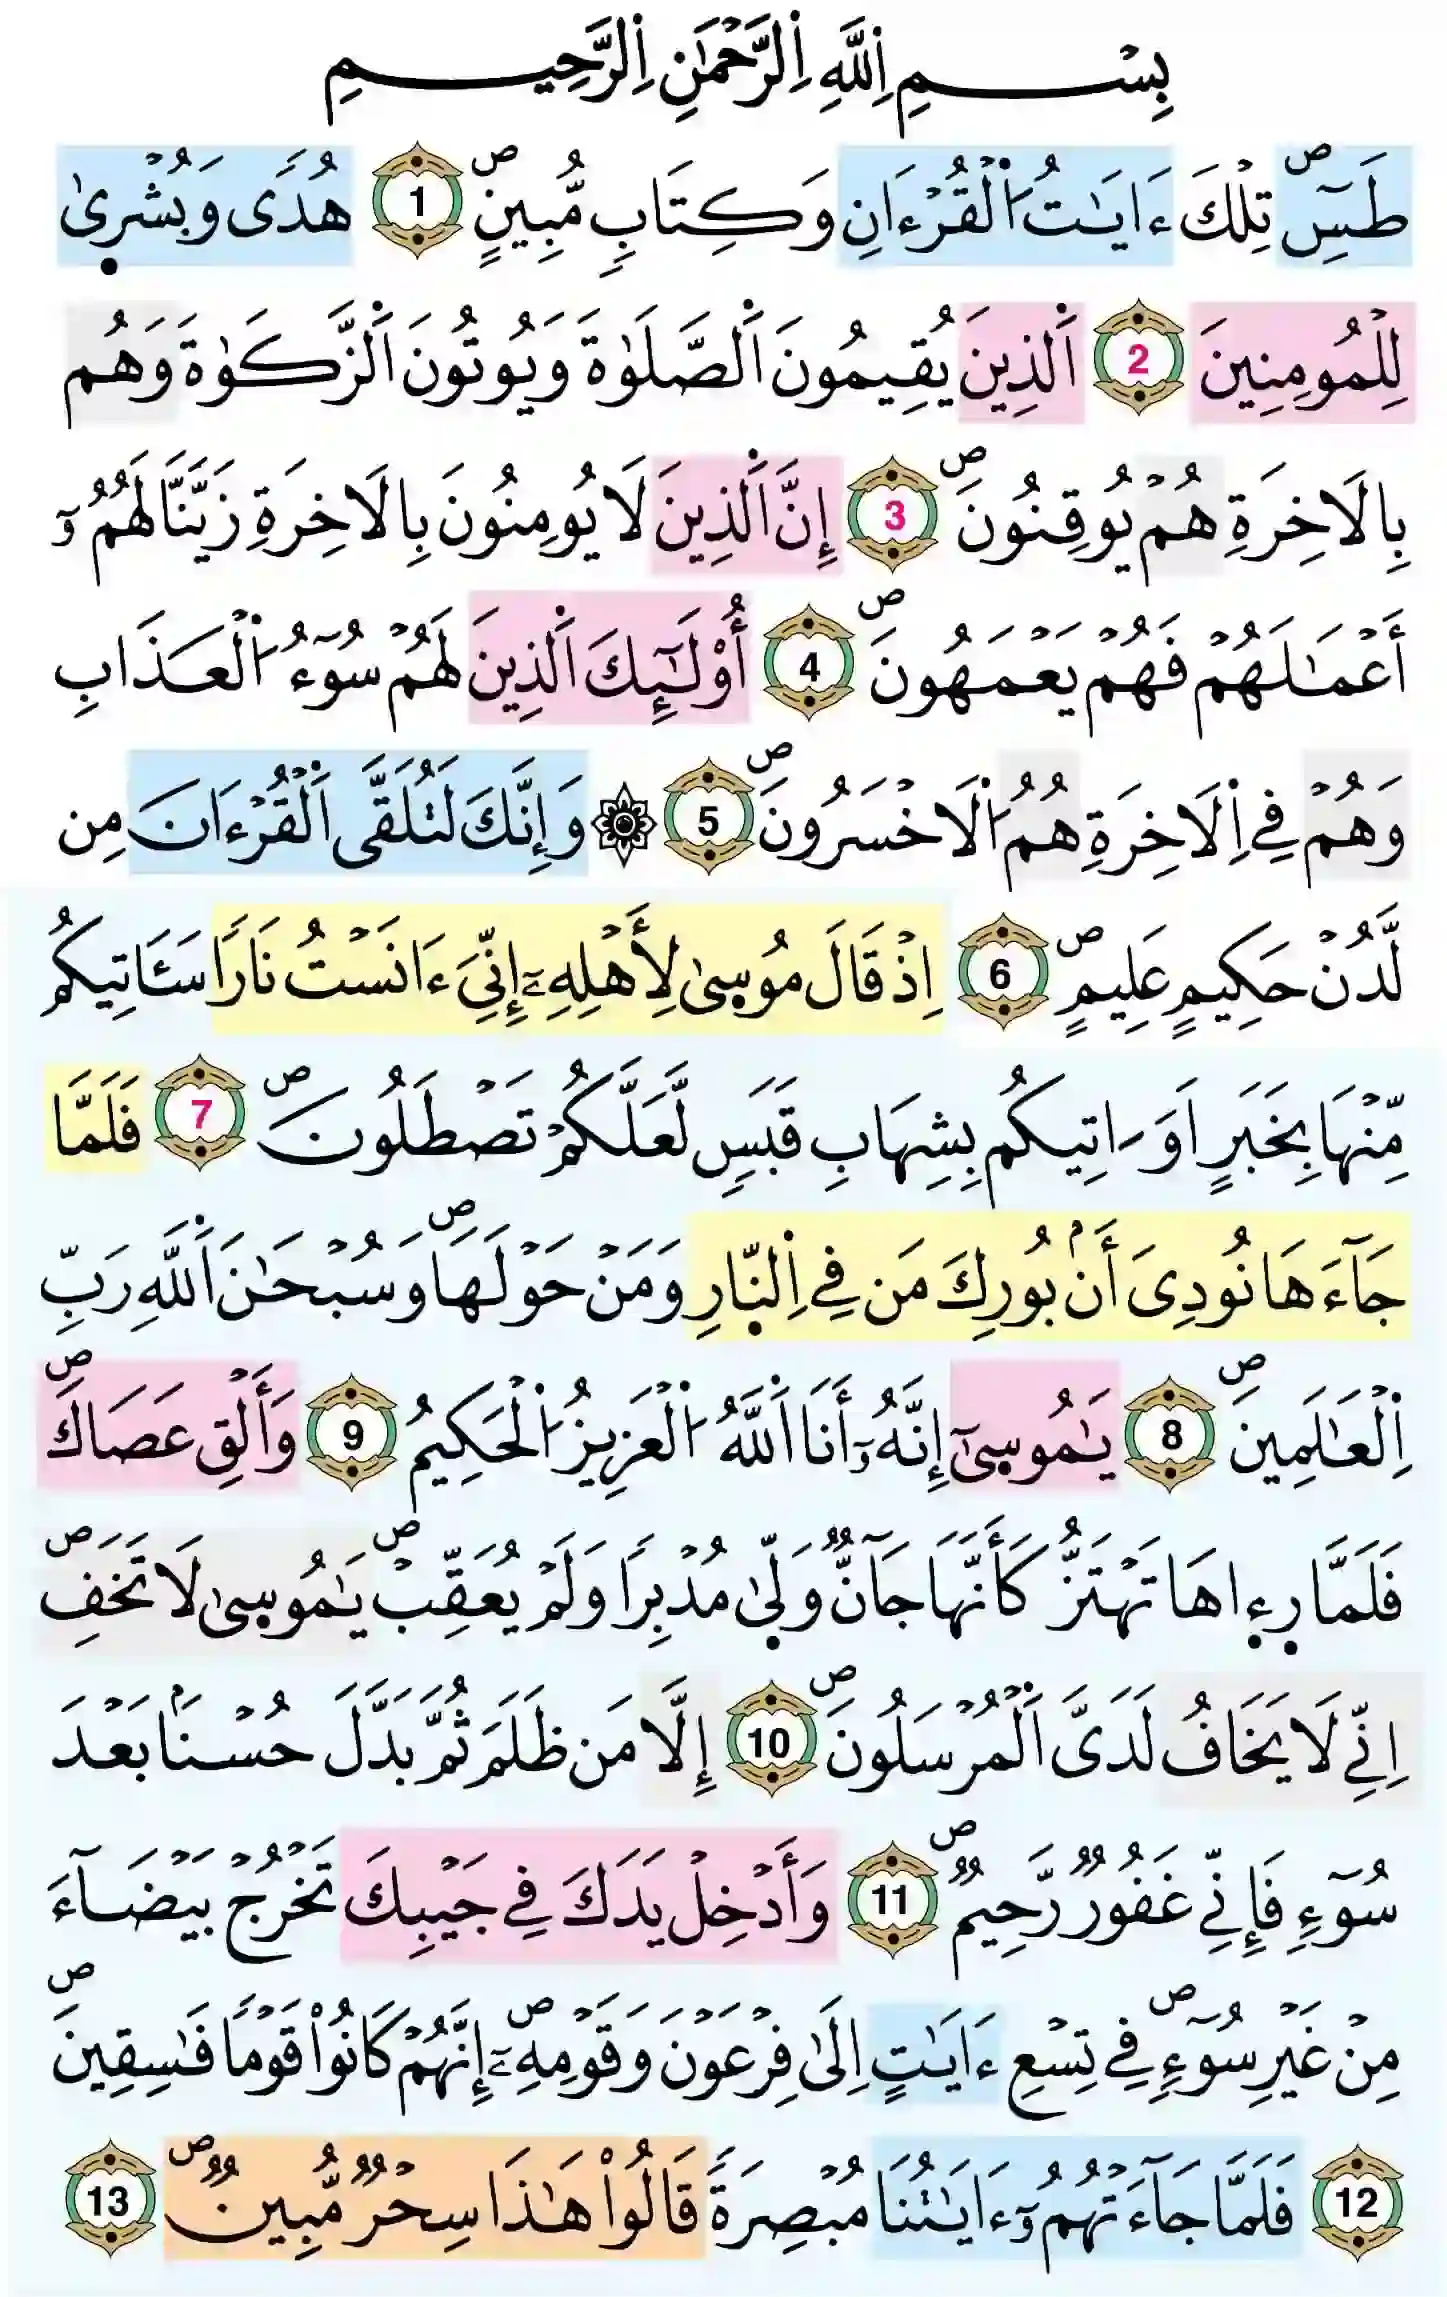 بِسْمِ اِ۬للَّهِ اِ۬لرَّحْمَٰنِ اِ۬لرَّحِيمِ
طَسِٓۖ تِلْكَ ءَايَٰتُ اُ۬لْقُرْءَانِ وَكِتَابٖ مُّبِينٍۖ 1 هُدىٗ وَبُشْر۪يٰ
لِلْمُومِنِينَ 2 اَ۬لذِينَ يُقِيمُونَ اَ۬لصَّلَوٰةَ وَيُوتُونَ اَ۬لزَّكَوٰةَ وَهُم
بِالَاخِرَةِ هُمْ يُوقِنُونَۖ 3 إِنَّ اَ۬لذِينَ لَا يُومِنُونَ بِالَاخِرَةِ زَيَّنَّا لَهُمُۥٓ
أَعْمَٰلَهُمْ فَهُمْ يَعْمَهُونَۖ 4 أُوْلَٰٓئِكَ اَ۬لذِينَ لَهُمْ سُوٓءُ اُ۬لْعَذَابِ
وَهُمْ فِے اِ۬لَاخِرَةِ هُمُ اُ۬لَاخْسَرُونَۖ 5 ۞ وَإِنَّكَ لَتُلَقَّى اَ۬لْقُرْءَانَ مِن
لَّدُنْ حَكِيمٍ عَلِيمٍۖ 6 اِذْ قَالَ مُوس۪يٰ لِأَهْلِهِۦٓ إِنِّيَ ءَانَسْتُ نَاراٗ سَـَٔاتِيكُم
مِّنْهَا بِخَبَرٍ اَوَ اٰتِيكُم بِشِهَابِ قَبَسٖ لَّعَلَّكُمْ تَصْطَلُونَۖ 7 فَلَمَّا
جَآءَهَا نُودِيَ أَنۢ بُورِكَ مَن فِے اِ۬لنّ۪ارِ وَمَنْ حَوْلَهَاۖ وَسُبْحَٰنَ اَ۬للَّهِ رَبِّ
اِ۬لْعَٰلَمِينَۖ 8 يَٰمُوس۪يٰٓ إِنَّهُۥٓ أَنَا اَ۬للَّهُ اُ۬لْعَزِيزُ اُ۬لْحَكِيمُ 9 وَأَلْقِ عَصَاكَۖ
فَلَمَّا ر۪ء۪اهَا تَهْتَزُّ كَأَنَّهَا جَآنّٞ وَلّ۪يٰ مُدْبِراٗ وَلَمْ يُعَقِّبْۖ يَٰمُوس۪يٰ لَا تَخَفِۖ
اِنِّے لَا يَخَافُ لَدَيَّ اَ۬لْمُرْسَلُونَۖ 10 إِلَّا مَن ظَلَمَ ثُمَّ بَدَّلَ حُسْناَۢ بَعْدَ
سُوٓءٖ فَإِنِّے غَفُورٞ رَّحِيمٞۖ 11 وَأَدْخِلْ يَدَكَ فِے جَيْبِكَ تَخْرُجْ بَيْضَآءَ
مِنْ غَيْرِ سُوٓءٖۖ فِے تِسْعِ ءَايَٰتٍ اِلَىٰ فِرْعَوْنَ وَقَوْمِهِۦٓۖ إِنَّهُمْ كَانُواْ قَوْماٗ فَٰسِقِينَۖ
12 فَلَمَّا جَآءَتْهُمُۥٓ ءَايَٰتُنَا مُبْصِرَةٗ قَالُواْ هَٰذَا سِحْرٞ مُّبِينٞۖ 13